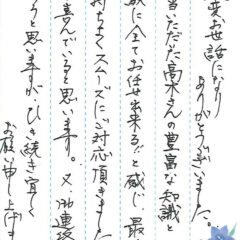 変お世話になり
ありがとうございました。
当いただいた高木さんの豊富な知識と
全てお任せ出来る!と感じ、最
持ちよくスムーズにご対応頂きました
喜んでいると思います。又、連絡
ると思いますが、ひき続き宜しく
お願い申し上げま